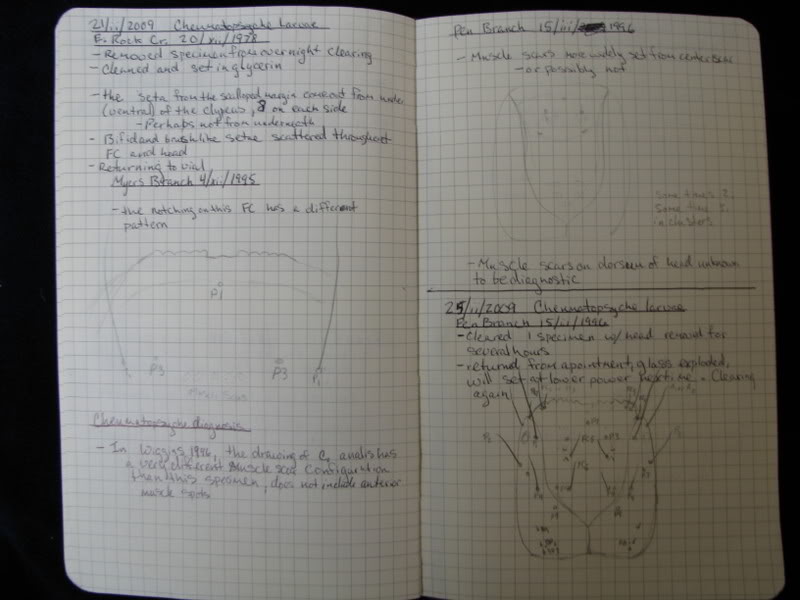 21/ii/2009 Cheumatopsyche larvae
E. Rock Cr. 20/xii/1978
- Removed specimen from overnight clearing
- Cleaned and set in glycerin
- the seta from the scalloped margin come out from under
(ventral) of the clypeus, 8 on each side
- Perhaps not from underneath
- Bifid and brushlike setae scattered throughout
FC and head
- Returning to vial
Myers Branch 4/xii/1995
- the notching on this FC has a different
pattern
P1
P3 P3 P1
Muscle Scars
Cheumatopsyche diagnosis
- In Wiggins 1996, the drawing of C. analis has
a very different muscle scar configuration
than this specimen, does not include anterior
muscle spots
Pen Branch 15/iii/1996
- Muscle scars more widely set from center
- or possibly not
some times 2,
some time 3,
in clusters
- Muscle scars on dorsum of head unknown
to be diagnostic
25/ii/2009 Cheumatopsyche larvae
Pen Branch 15/iii/1996
- Cleared 1 specimen w/ head removed for
several hours
- returned from apointment, glass exploded,
will set at lower power next time. Clearing
again